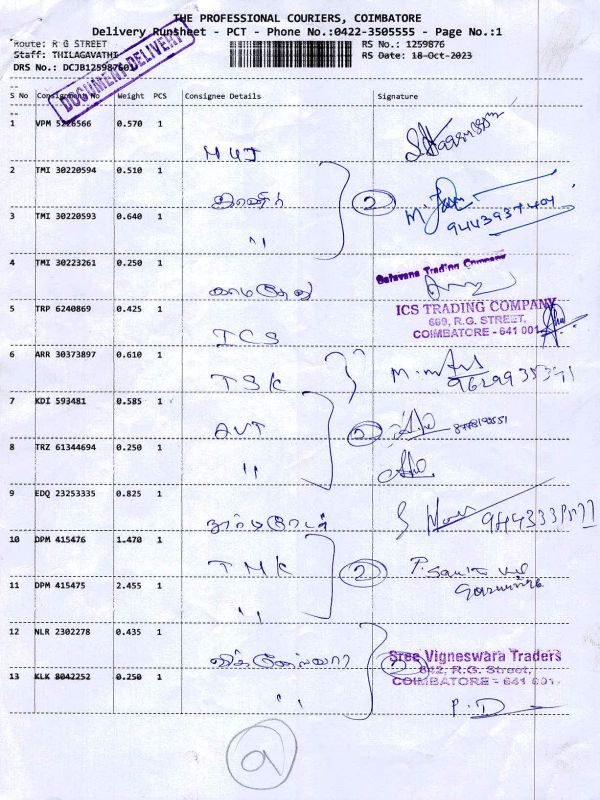 THE PROFESSIONAL COURIERS, COIMBATORE
Delivery Runsheet - PCT - Phone No.:0422-3505555 - Page No.:1
Route: R G STREET
RS No.: 1259876
Staff: THILAGAVATHI
RS Date: 18-Oct-2023
DRS No.: DCJB125987601
DOCUMENT DELIVERY
S No Consignment No Weight PCS Consignee Details Signature
1 VPM 5226566 0.570 1
2 TMI 30220594 0.510 1
2
3 TMI 30220593 0.640 1 " 9443937401
4 TMI 30223261 0.250 1 காமதேனு
Saravana Trading Company
5 TRP 6240869 0.425 1 ICS
ICS TRADING COMPANY
669, R.G. STREET,
COIMBATORE - 641 001
6 ARR 30373897 0.610 1 TSK
7 KDI 593481 0.585 1 AVT
2
8 TRZ 61344694 0.250 1 "
9 EDQ 23253335 0.825 1
10 DPM 415476 1.470 1 TMK
2
11 DPM 415475 2.455 1 "
12 NLR 2302278 0.435 1
Sree Vigneswara Traders
642, R.G. Street,
COIMBATORE - 641 001.
13 KLK 8042252 0.250 1 "
P. D